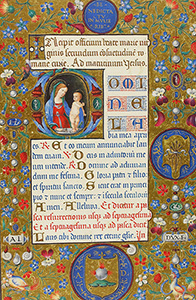 Incipit officium beate marie uir
ginis secundum consuetudinem ro
mane curie. Ad matutinum Versus.
OMI
NE LA
BIA
bia mea aperi
es. Et os meum annunciabit lau
dem tuam. Deus in adiutorium
meum intende. Domine ad adiuuan
dum me festina. Gloria patri et filio
et spiritui sancto. Sicut erat in princi
pio et nunc et semper: et in secula seculorum
Amen. Alleluya. Et dicitur a pa
sca resurrectionis usque ad septuagesimam
Et a septuagesima usque ad pasca dicitur
Laus tibi domine rex eterne glorie.